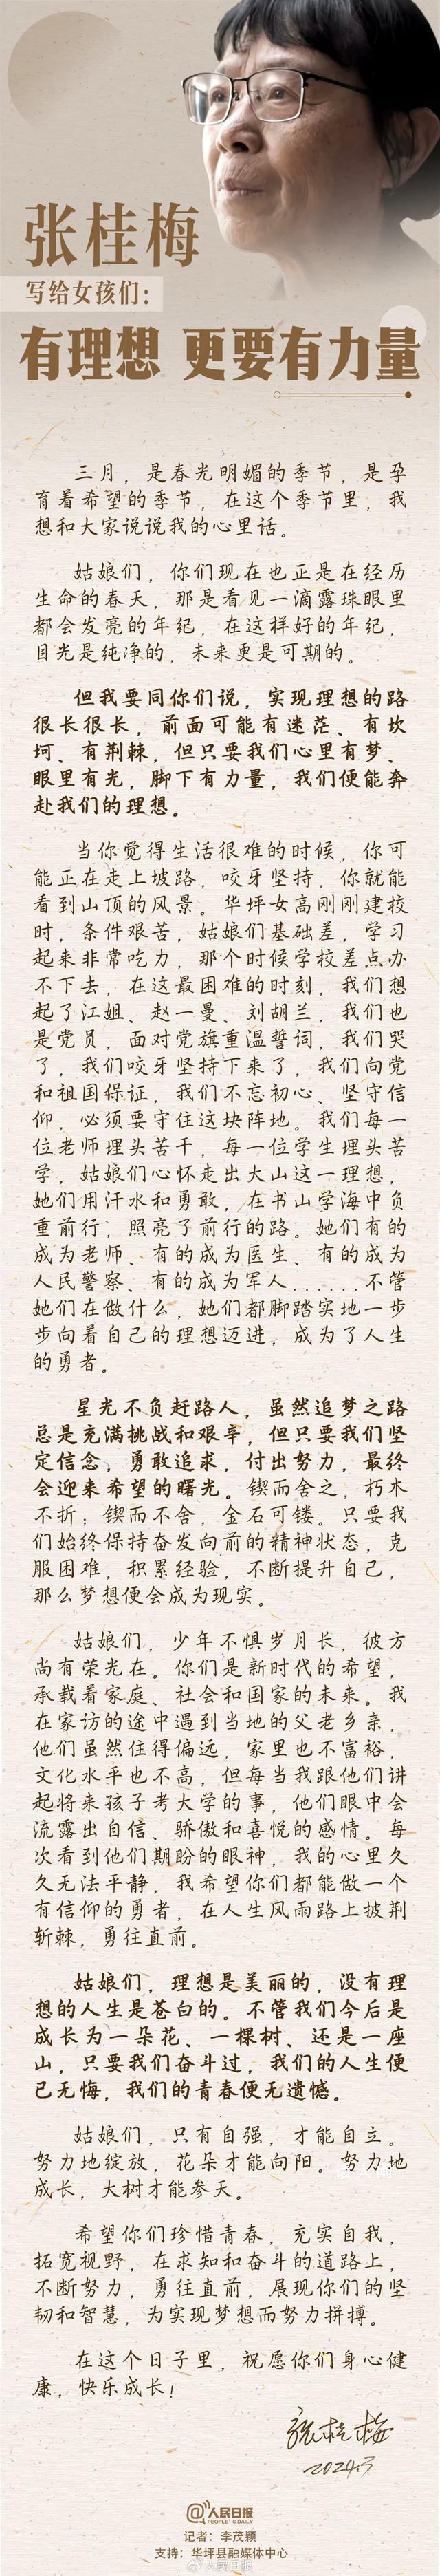 张桂梅
写给女孩们：
有理想 更要有力量
三月，是春光明媚的季节，是孕
育着希望的季节，在这个季节里，我
想和大家说说我的心里话。
姑娘们，你们现在也正是在经历
生命的春天，那是看见一滴露珠眼里
都会发亮的年纪，在这样好的年纪，
目光是纯净的，未来更是可期的。
但我要同你们说，实现理想的路
很长很长，前面可能有迷茫、有坎
坷、有荆棘，但只要我们心里有梦、
眼里有光，脚下有力量，我们便能奔
赴我们的理想。
当你觉得生活很难的时候，你可
能正在走上坡路，咬牙坚持，你就能
看到山顶的风景。华坪女高刚刚建校
时，条件艰苦，姑娘们基础差，学习
起来非常吃力，那个时候学校差点办
不下去，在这最困难的时刻，我们想
起了江姐、赵一曼、刘胡兰，我们也
是党员，面对党旗重温誓词，我们哭
了，我们咬牙坚持下来了，我们向党
和祖国保证，我们不忘初心、坚守信
仰，必须要守住这块阵地。我们每一
位老师埋头苦干，每一位学生埋头苦
学，姑娘们心怀走出大山这一理想，
她们用汗水和勇敢，在书山学海中负
重前行，照亮了前行的路。她们有的
成为老师、有的成为医生、有的成为
人民警察、有的成为军人......不管
她们在做什么，她们都脚踏实地一步
步向着自己的理想迈进，成为了人生
的勇者。
星光不负赶路人，虽然追梦之路
总是充满挑战和艰辛，但只要我们坚
定信念，勇敢追求，付出努力，最终
会迎来希望的曙光。锲而舍之，朽木
不折；锲而不舍，金石可镂。只要我
们始终保持奋发向前的精神状态，克
服困难，积累经验，不断提升自己，
那么梦想便会成为现实。
姑娘们，少年不惧岁月长，彼方
尚有荣光在。你们是新时代的希望，
承载着家庭、社会和国家的未来。我
在家访的途中遇到当地的父老乡亲，
他们虽然住得偏远，家里也不富裕，
文化水平也不高，但每当我跟他们讲
起将来孩子考大学的事，他们眼中会
流露出自信、骄傲和喜悦的感情。每
次看到他们期盼的眼神，我的心里久
久无法平静，我希望你们都能做一个
有信仰的勇者，在人生风雨路上披荆
斩棘，勇往直前。
姑娘们，理想是美丽的，没有理
想的人生是苍白的。不管我们今后是
成长为一朵花、一棵树、还是一座
山，只要我们奋斗过，我们的人生便
已无悔，我们的青春便无遗憾。
姑娘们，只有自强，才能自立。
努力地绽放，花朵才能向阳。努力地
成长，大树才能参天。
希望你们珍惜青春，充实自我，
拓宽视野，在求知和奋斗的道路上，
不断努力，勇往直前，展现你们的坚
韧和智慧，为实现梦想而努力拼搏。
在这个日子里，祝愿你们身心健
康，快乐成长！
张桂梅
2024.3
@人民日报
PEOPLE'S DAILY
记者：李茂颖
支持：华坪县融媒体中心
@人民日报